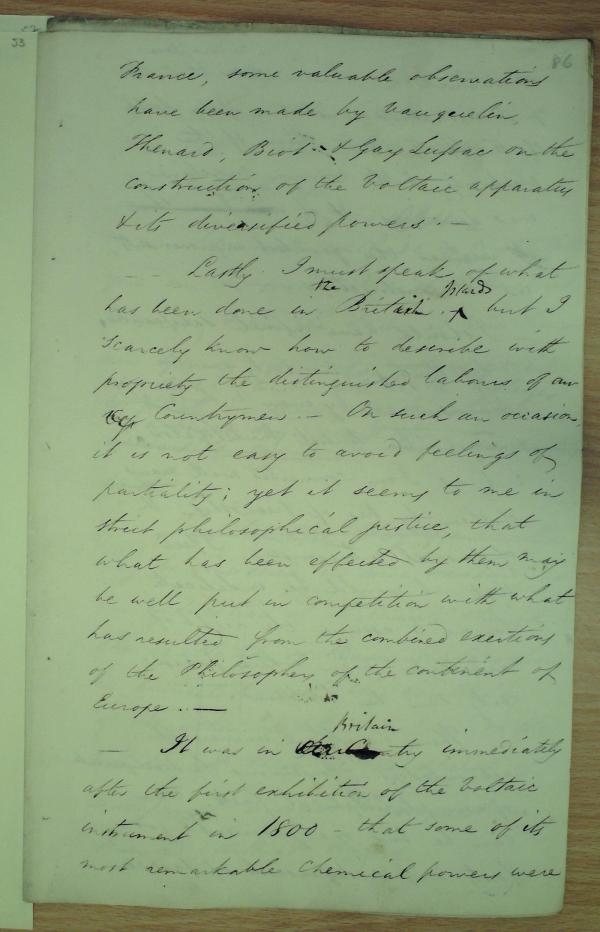 86
53
France, some valuable observations
have been made by Vauquelin,
Thenard, Biot & Gay Lussac on the
construction of the Voltaic apparatus
& its diversified powers. —
Lastly I must speak of what
has been done in the British Islands but I
scarcely know how to describe with
propriety the distinguished labours of our
Countrymen. — On such an occasion,
it is not easy to avoid feelings of
partiality; yet it seems to me in
strict philosophical justice, that
what has been effected by them may
be well put in competition with what
has resulted from the combined exertions
of the Philosophers of the continent of
Europe. —
— It was in Britain immediately
after the first exhibition of the Voltaic
instrument in 1800 – that some of its
most remarkable Chemical powers were